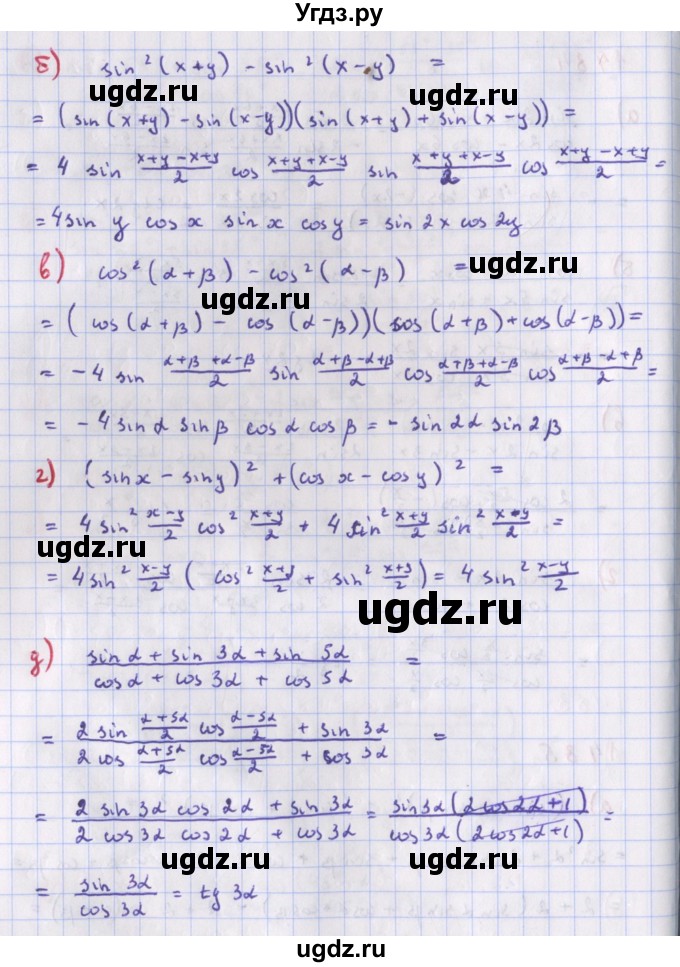 Угдз.ру
б) sin²(x+y) - sin²(x-y) =
ugdz.ru
= (sin(x+y) - sin(x-y))(sin(x+y) + sin(x-y)) =
= 4 sin (x+y-x+y)/2 cos (x+y+x-y)/2 sin (x+y+x-y)/2 cos (x+y-x+y)/2 =
= 4 sin y cos x sin x cos y = sin 2x cos 2y
ugdz.ru
в) cos²(α+β) - cos²(α-β) =
ugdz.ru
= (cos(α+β) - cos(α-β))(cos(α+β) + cos(α-β)) =
= -4 sin (α+β+α-β)/2 sin (α+β-α+β)/2 cos (α+β+α-β)/2 cos (α+β-α+β)/2 =
= -4 sin α sin β cos α cos β = - sin 2α sin 2β
ugdz.ru
г) (sin x - sin y)² + (cos x - cos y)² =
= 4 sin² (x-y)/2 cos² (x+y)/2 + 4 sin² (x+y)/2 sin² (x-y)/2 =
ugdz.ru
= 4 sin² (x-y)/2 (cos² (x+y)/2 + sin² (x+y)/2) = 4 sin² (x-y)/2
ugdz.ru
д) (sin α + sin 3α + sin 5α)/(cos α + cos 3α + cos 5α) =
ugdz.ru
= (2 sin (α+5α)/2 cos (α-5α)/2 + sin 3α)/(2 cos (α+5α)/2 cos (α-5α)/2 + cos 3α) =
= (2 sin 3α cos 2α + sin 3α)/(2 cos 3α cos 2α + cos 3α) = (sin 3α (2 cos 2α + 1))/(cos 3α (2 cos 2α + 1)) =
ugdz.ru
ugdz.ru
= sin 3α/cos 3α = tg 3α
ugdz.ru